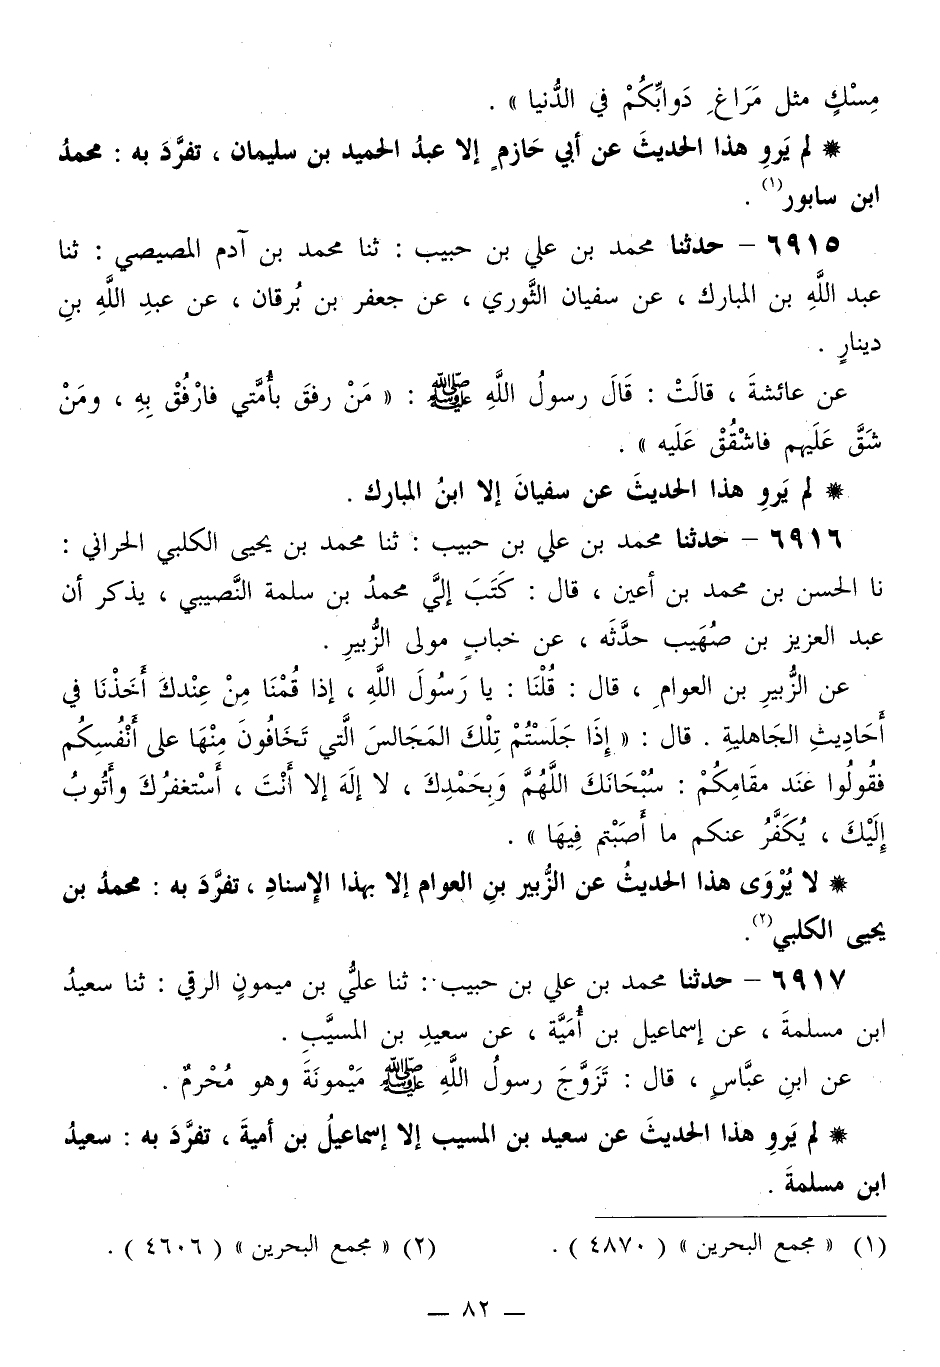 مِسْكٍ مثل مَرَاغِ دَوابِّكُمْ في الدُّنيا » .
* لم يَروِ هذا الحديثَ عن أبي حَازمٍ إلا عبدُ الحميد بن سليمان ، تفرَّدَ به : محمدُ
ابن سابور(١) .
٦٩١٥ - حدثنا محمد بن علي بن حبيب : ثنا محمد بن آدم المصيصي : ثنا
عبد اللَّهِ بن المبارك ، عن سفيان الثَّوري ، عن جعفر بن بُرقان ، عن عبدِ اللَّهِ بنِ
دينارٍ .
عن عائشةَ ، قالَتْ : قَالَ رسولُ اللَّهِ ﷺ : « مَنْ رفقَ بأُمَّتي فارْفُقْ بِهِ ، ومَنْ
شَقَّ عَلَيهم فاشْقُقْ عَلَيه » .
* لم يَروِ هذا الحديثَ عن سفيانَ إلا ابنُ المبارك .
٦٩١٦ - حدثنا محمد بن علي بن حبيب : ثنا محمد بن يحيى الكلبي الحراني :
نا الحسن بن محمد بن أعين ، قال : كَتَبَ إليَّ محمدُ بن سلمة النَّصيبي ، يذكر أن
عبد العزيز بن صُهَيب حدَّثَه ، عن خبابٍ مولى الزُّبيرِ .
عن الزُّبيرِ بن العوامِ ، قال : قُلْنَا : يا رَسُولَ اللَّهِ ، إذا قُمْنَا مِنْ عِندكَ أَخَذْنَا في
أحَادِيثِ الجَاهليةِ . قال : « إِذَا جَلَسْتُمْ تِلْكَ المَجَالسَ الَّتي تَخَافُونَ مِنْهَا على أَنْفُسِكُم
فقُولُوا عَند مقَامِكُمْ : سُبْحَانَكَ اللَّهُمَّ وَبِحَمْدِكَ ، لا إلَهَ إلا أَنْتَ ، أَسْتغفرُكَ وأَتُوبُ
إِلَيْكَ ، يُكَفَّرُ عنكم ما أَصَبْتم فِيهَا » .
* لا يُرْوَى هذا الحديثُ عن الزُّبير بنِ العوام إلا بهذا الإِسنادِ ، تفرَّدَ به : محمدُ بن
يحيى الكلبي(٢).
٦٩١٧ - حدثنا محمد بن علي بن حبيب : ثنا عليُّ بن ميمونٍ الرقي : ثنا سعيدُ
ابن مسلمةَ ، عن إسماعيل بن أُمَيَّة ، عن سعيدِ بن المسيَّبِ .
عن ابنِ عبَّاسٍ ، قال : تَزَوَّجَ رسولُ اللَّهِ ﷺ مَيْمونَةَ وهو مُحْرمٌ .
* لم يَروِ هذا الحديثَ عن سعيد بن المسيب إلا إسماعيلُ بن أميةَ ، تفرَّدَ به : سعيدُ
ابن مسلمةَ .
(١) « مجمع البحرين » ( ٤٨٧٠ ) . (٢) « مجمع البحرين » ( ٤٦٠٦ ) .
— ٨٢ —